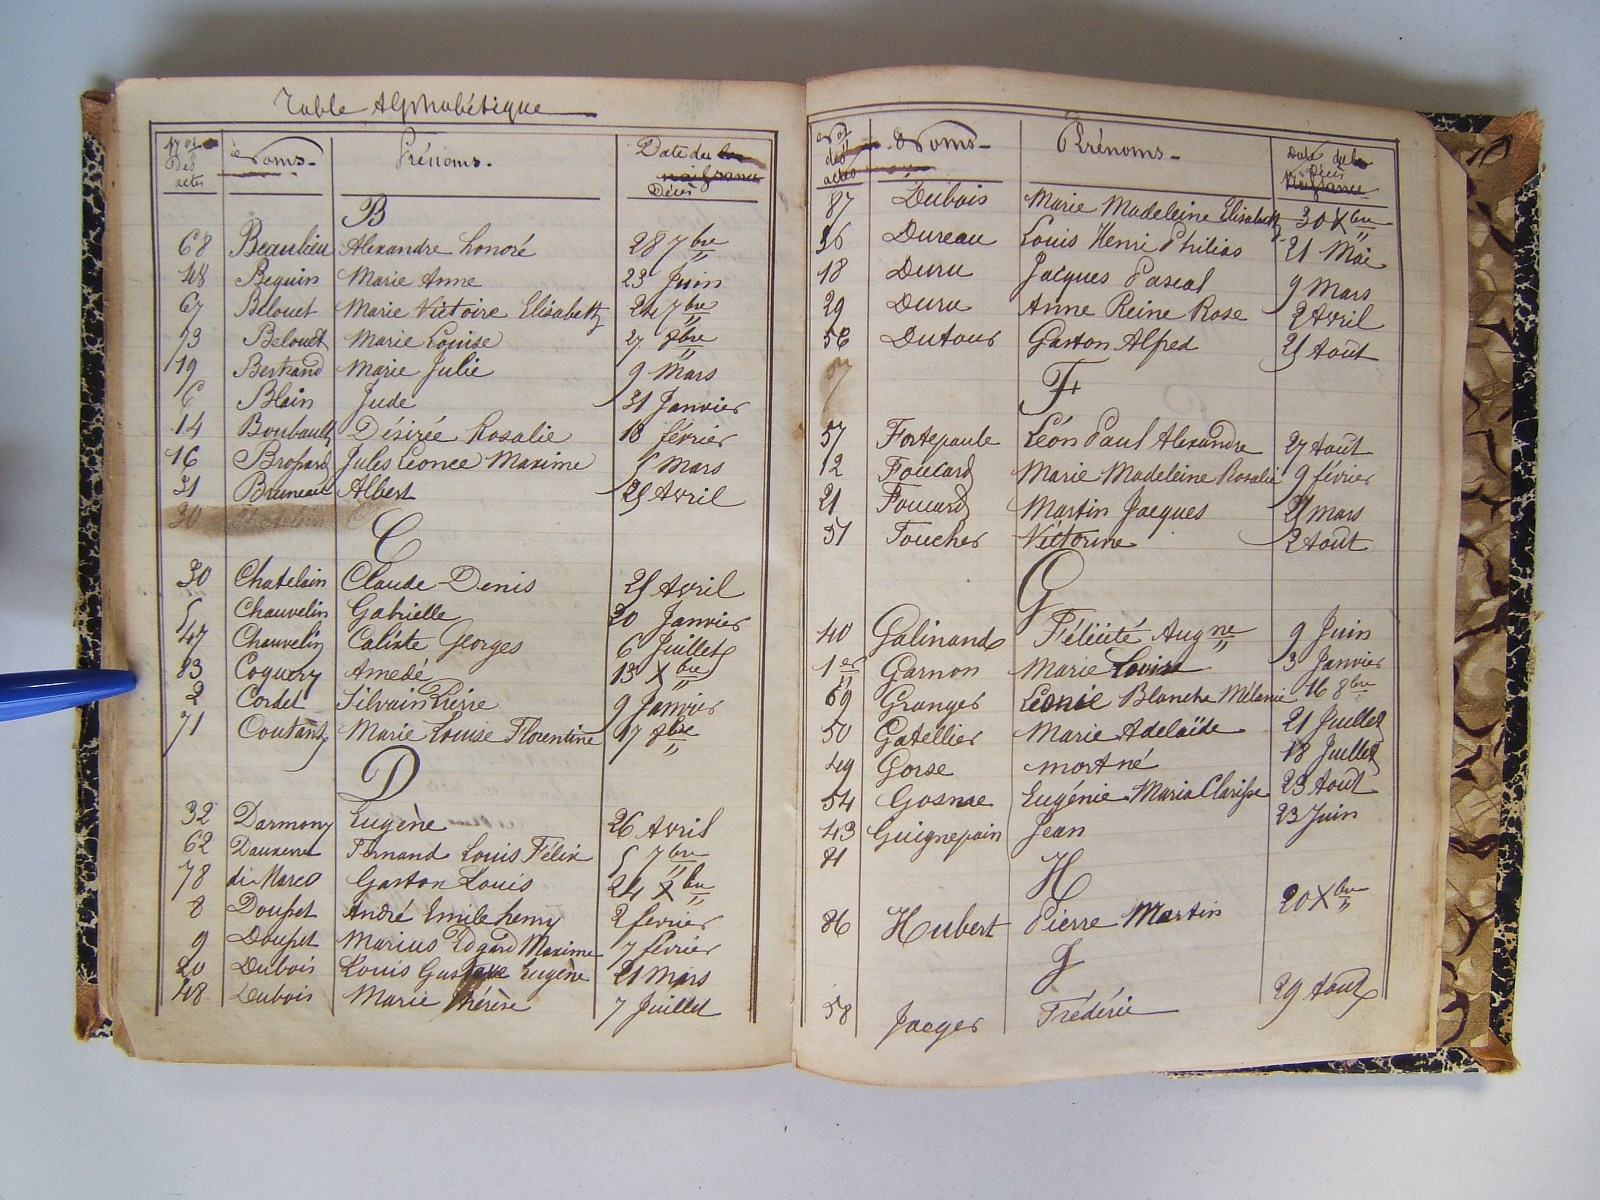 Table Alphabétique
Nos Des actes Noms Prénoms. Date du la naissance Décès
B
68 Beaulieu Alexandre honoré 28 7bre
48 Beguin Marie Anne 23 Juin
67 Belouet Marie Victoire Elisabeth 24 7bre
73 Belouet Marie Louise 27 8bre
19 Bertrand Marie Julie 9 Mars
6 Blain Jude 31 Janvier
14 Boubault Désirée Rosalie 18 février
16 Brossard Jules Léonce Maxime 1 Mars
31 Bruneau Albert 25 Avril
30
C
30 Chatelain Claude Denis 21 Avril
5 Chauvelin Gabrielle 20 Janvier
47 Chauvelin Calixte Georges 6 Juillet
83 Coquery Amedé 13 Xbre
2 Cordet Silvain Pierre 9 Janvier
71 Coutant Marie Louise Florentine 17 8bre
D
32 Darmony Eugène 26 Avril
62 Fernand Louis Félix 5 7bre
78 di Marco Gaston Louis 24 Xbre
8 Doupet André Emile henry 2 février
9 Doupet Marius Edgard Maxime 7 février
20 Dubois Louis Gustave Eugène 21 Mars
48 Dubois Marie Thérèse 7 Juillet
Nos des actes Noms Prénoms Date du la Décès naissance
87 Dubois Marie Madeleine Elisabeth 30 Xbre
36 Dureau Louis Henri Philias 21 Mai
18 Duru Jacques Pascal 9 Mars
29 Duru Anne Reine Rose 2 Avril
56 Dutour Gaston Alfred 21 Aout
57
F
57 Fortepaule Léon Paul Alexandre 27 Août
12 Foucard Marie Madeleine Rosalie 9 février
21 Foucard Martin Jacques 21 mars
51 Foucher Victorine 2 Août
G
40 Galinand Félicité Augne 9 Juin
1er Garnon Marie Louise 3 Janvier
69 Granger Léonie Blanche Mélanie 16 8bre
50 Gatellier Marie Adelaïde 21 Juillet
49 Gorse mort né 18 Juillet
54 Gosme Eugénie Maria Clarisse 23 Aout
43 Guignepain Jean 23 Juin
81
H
86 Hubert Pierre Martin 20 Xbre
J
58 Jaeger Fréderic 29 Aout